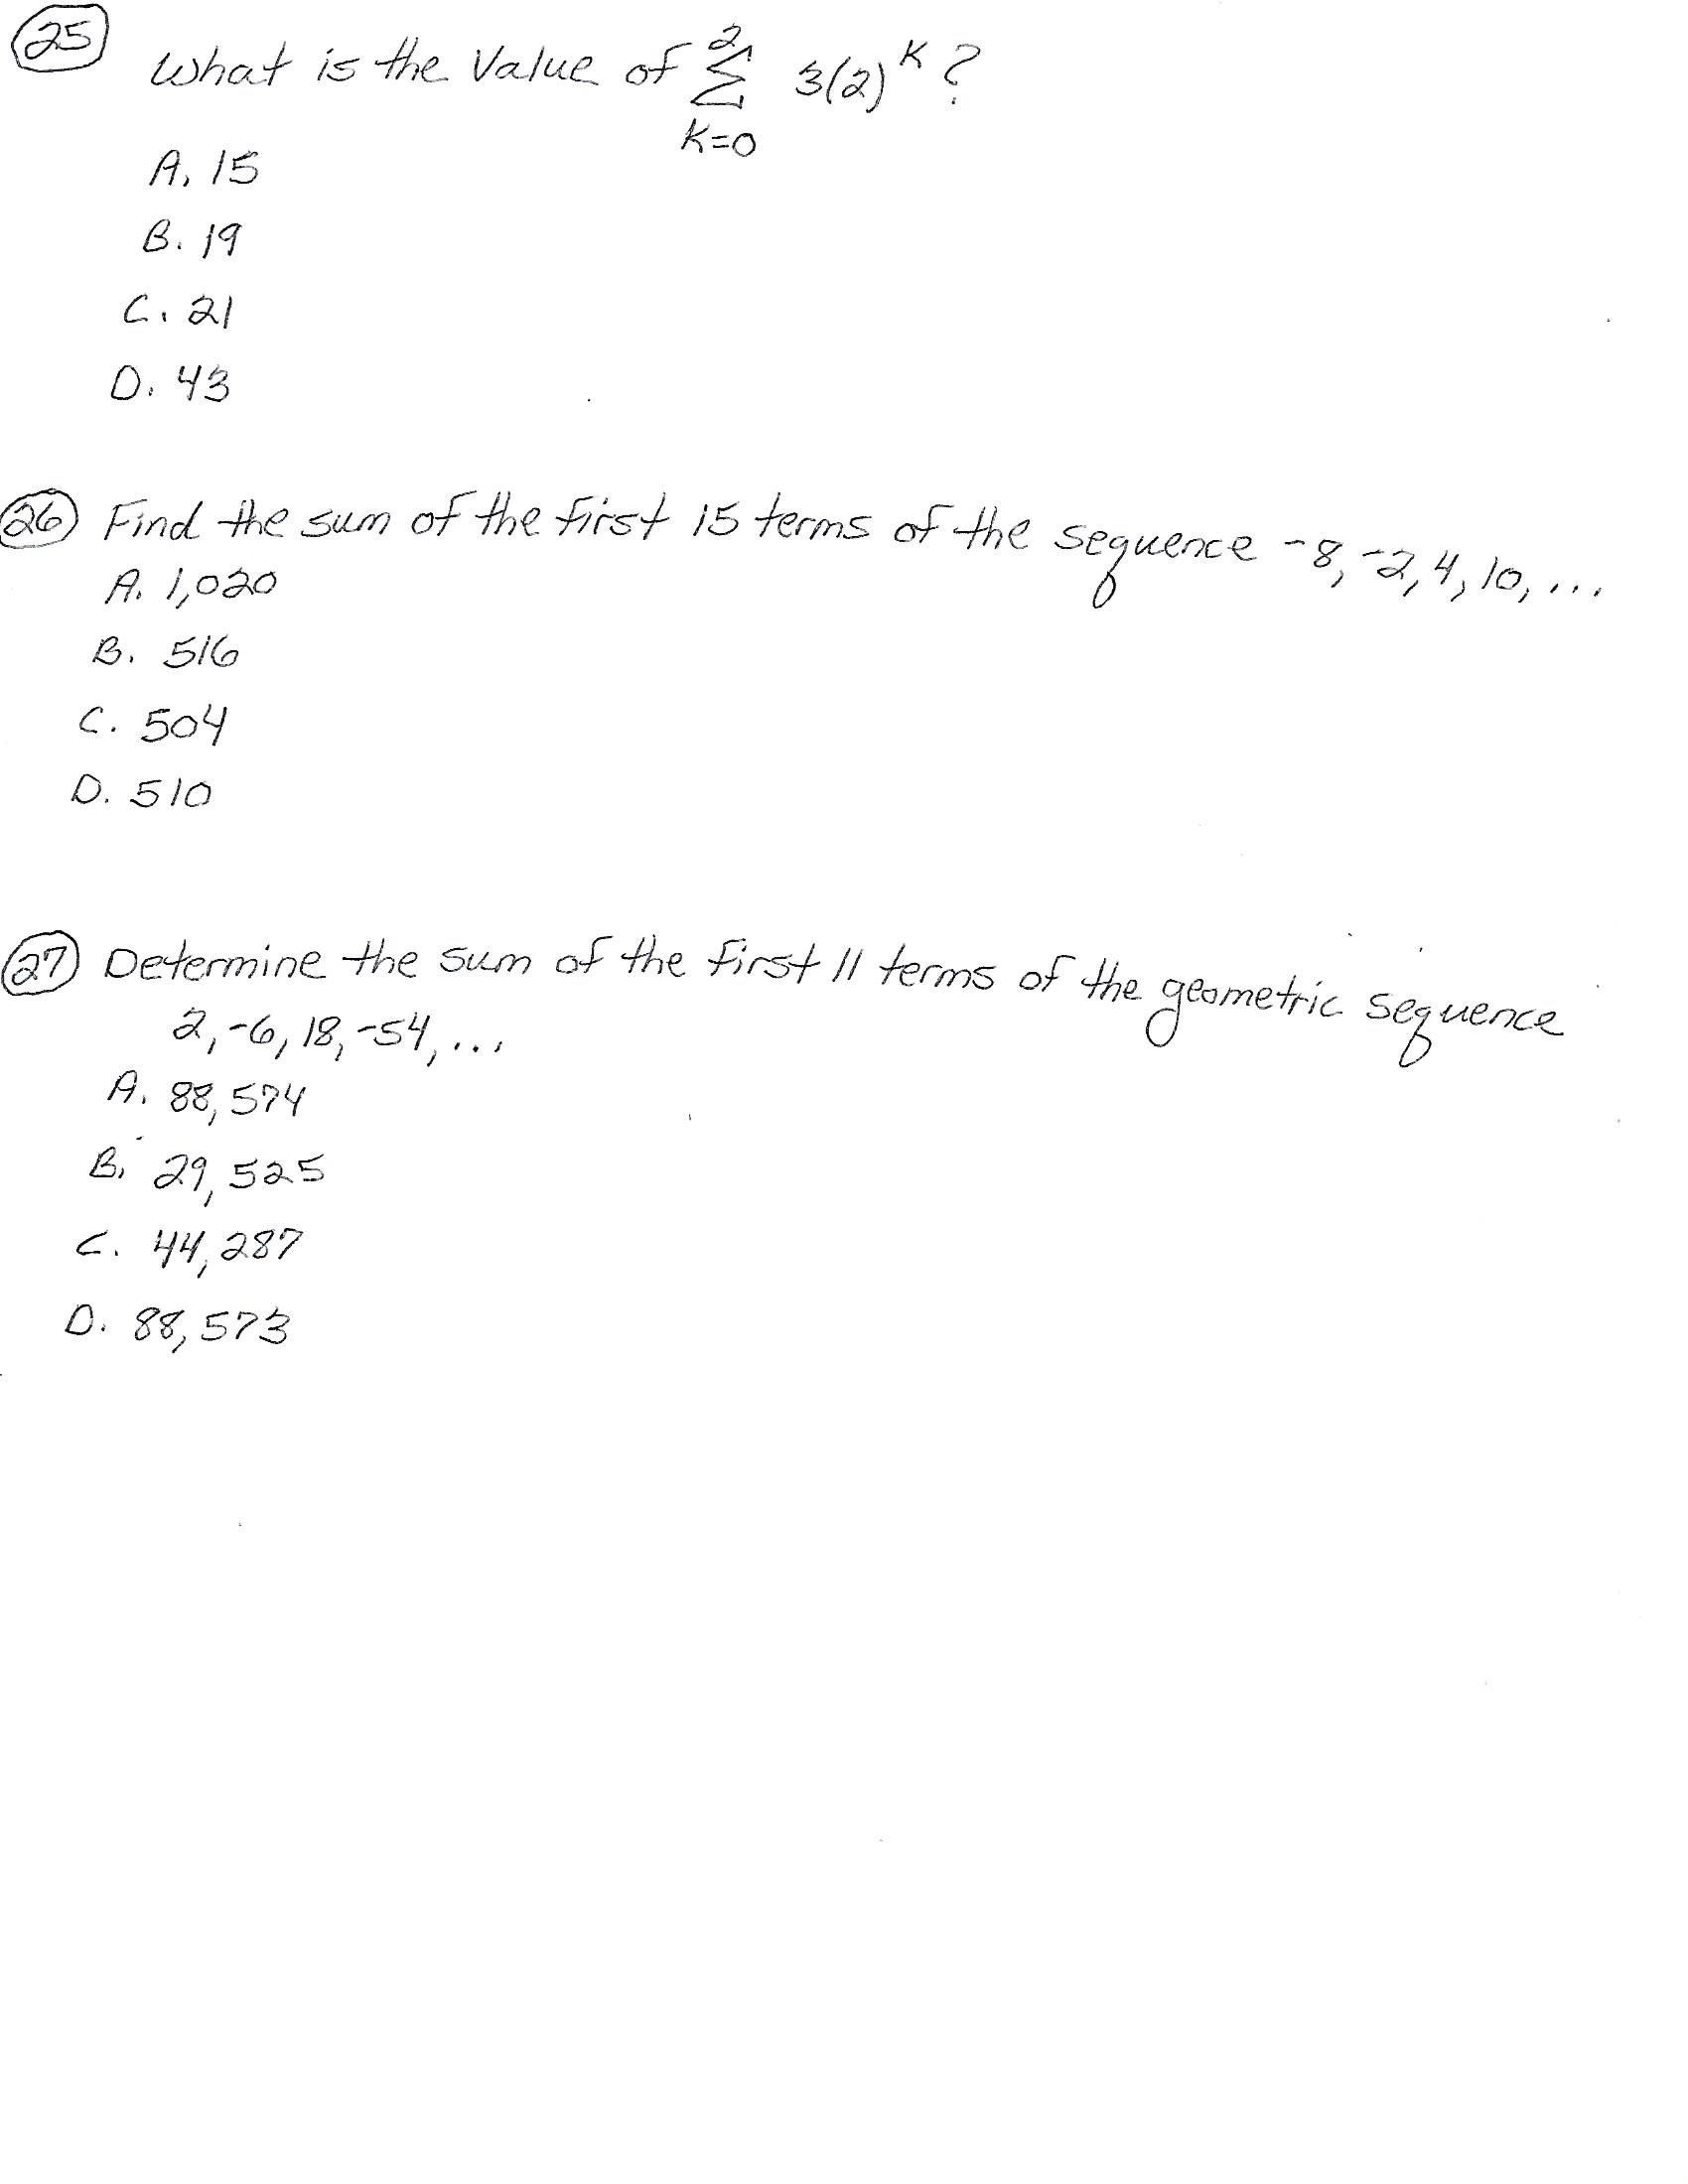 25 What is the value of 2 Σ K=0 3(2)^K ?
A. 15
B. 19
C. 21
D. 43
26 Find the sum of the first 15 terms of the sequence -8, -2, 4, 10, ...
A. 1,020
B. 516
C. 504
D. 510
27 Determine the sum of the first 11 terms of the geometric sequence
2, -6, 18, -54, ...
A. 88,574
B. 29,525
C. 44,287
D. 88,573